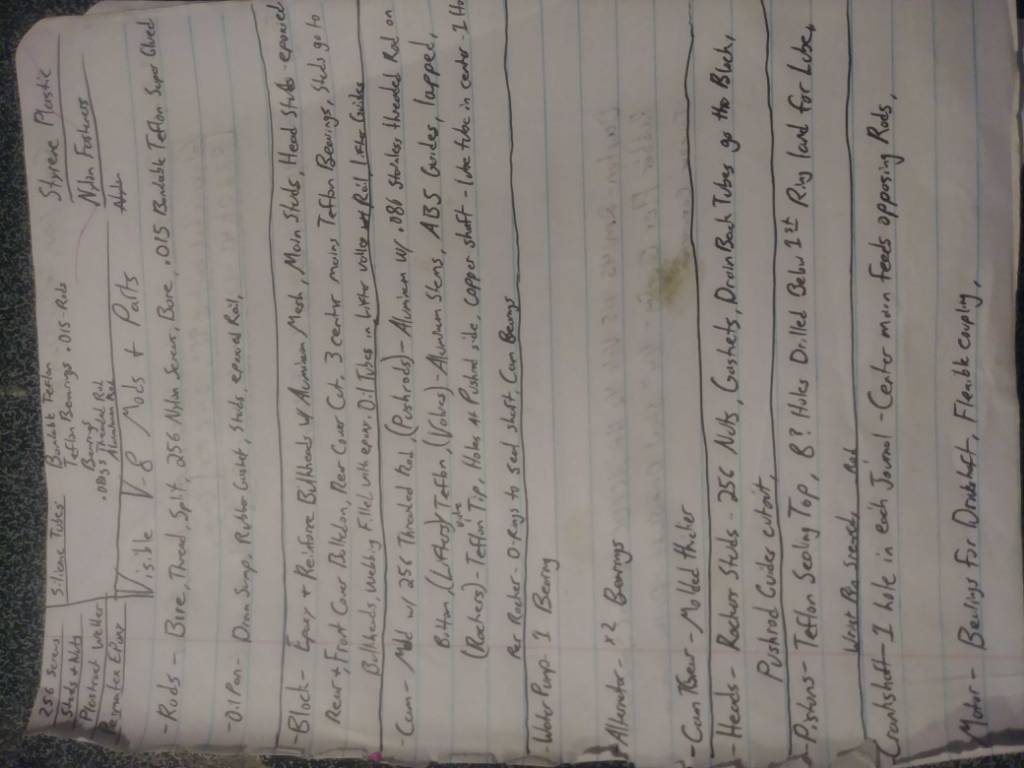 256 Screws
Studs + Nuts
Plastruct Welder
Permalee Epoxy
Silicone Tubes
Bendable Teflon
Teflon Bearings .015-Rods
Bearings
.0865 Threaded Rod
Aluminum Rod
Styrene Plastic
Nylon Fasteners
Nylon
Visible V-8 Mods + Parts
-Rods - Bore, Thread, Split, 256 Nylon Screws, Bore, .015 Bendable Teflon Super Glued
-Oil Pan - Drain Sump, Rubber Gasket, Studs, epoxied Rail,
-Block- Epoxy + Reinforce Bulkheads w/ Aluminum Mesh, Main Studs, Head Studs epoxied
Rear + Front Cover Bulkden, Rear Cover Cut, 3 center mains Teflon Bearings, Studs go to
Bulkheads, Webbing Filled with epoxy, Oil Tubes under lifter valley Rail, Lifter Guides
-Cam- Mold w/ 256 Threaded Rod, (Pushrods)- Aluminum w/ .086 Stainless threaded Rod on
Bottom, (Lifters) Teflon, (Valves)- Aluminum Stems, ABS Guides, lapped,
(Rockers)- Teflon Tip, Holes at Pushrod side, copper shaft - lube tube in center 1 Hole
Per Rocker - O-Rings to Seal shaft, Cam Bearings
-Water Pump- 1 Bearing
-Alternator- x2 Bearings
-Cam Gear - Molded thicker
-Heads- Rocker Studs - 256 Nuts, Gaskets, Drain Back Tubes go to Block,
Pushrod Guides cutout,
-Pistons- Teflon Sealing Top, 8? Holes Drilled Below 1st Ring land for Lube,
Wrist Pin Sleeved Rod
Crankshaft- 1 hole in each Journal - Center main Feeds opposing Rods,
Motor - Bearings For Driveshaft, Flexible coupling,